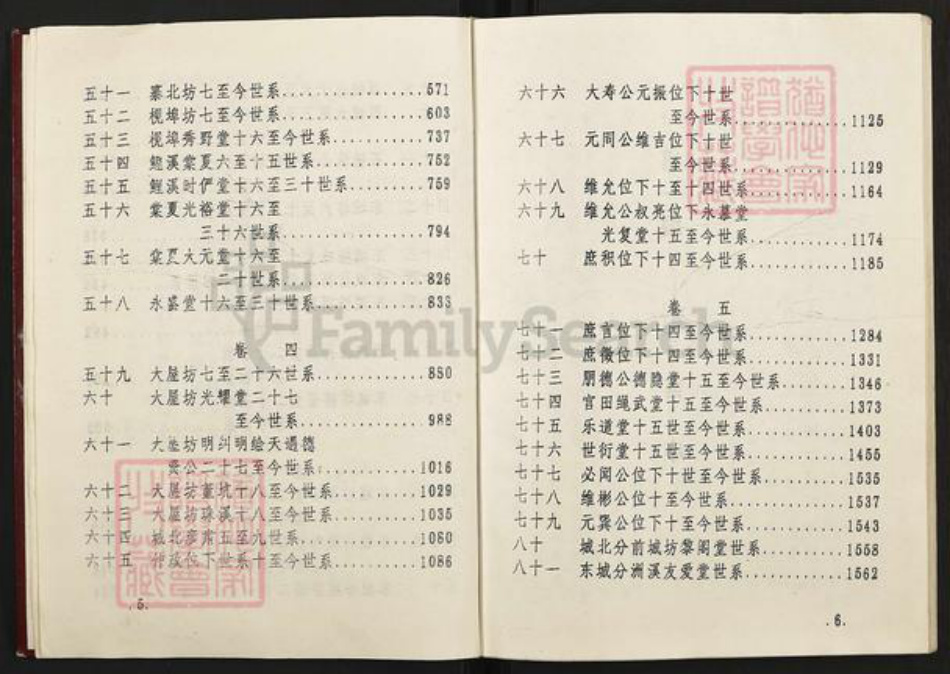 五十一 寨北坊七至今世系................571
五十二 枧埠坊七至今世系................603
五十三 枧埠秀野堂十六至今世系..........737
五十四 鲍溪棠夏六至十五世系............752
五十五 鲍溪时俨堂十六至三十世系........759
五十六 棠夏光裕堂十六至
三十六世系................794
五十七 棠夏大元堂十六至
二十世系................826
五十八 永盛堂十六至三十世系............833
卷 四
五十九 大屋坊七至二十六世系............880
六十 大屋坊光耀堂二十七
至今世系................988
六十一 大屋坊明纠明绘天遇德
贵公二十七至今世系............1016
六十二 大屋坊董坑十八至今世系..........1029
六十三 大屋坊珠溪十八至今世系..........1035
六十四 城北 五至九世系............1080
六十五 位下世系十至今世系..........1086
.5.
六十六 大寿公元振位下十世
至今世系..............1125
六十七 元同公维吉位下十世
至今世系..............1129
六十八 维允位下十至十四世系............1164
六十九 维允公叔亮位下永慕堂
光复堂十五至今世系............1174
七十 庶积位下十四至今世系............1185
卷 五
七十一 庶官位下十四至今世系............1284
七十二 庶徵位下十四至今世系............1331
七十三 朋德公德隐堂十五至今世系........1346
七十四 官田绳武堂十五至今世系..........1373
七十五 乐道堂十五世至今世系............1403
七十六 世衍堂十五世至今世系............1455
七十七 必闻公位下十世至今世系..........1535
七十八 维彬公位十至今世系..............1537
七十九 元龚公位下十至今世系............1543
八十 城北分前城坊黎阁堂世系..........1558
八十一 东城分洲溪友爱堂世系............1562
.6.
FamilySearch